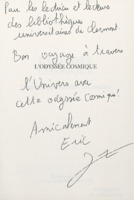 Pour les lecteurs et lectrices
des bibliothèques
universitaires de Clermont
Bon voyage à travers
L'ODYSSÉE COSMIQUE
l'Univers avec
cette odyssée cosmique!
Amicalement
Eric